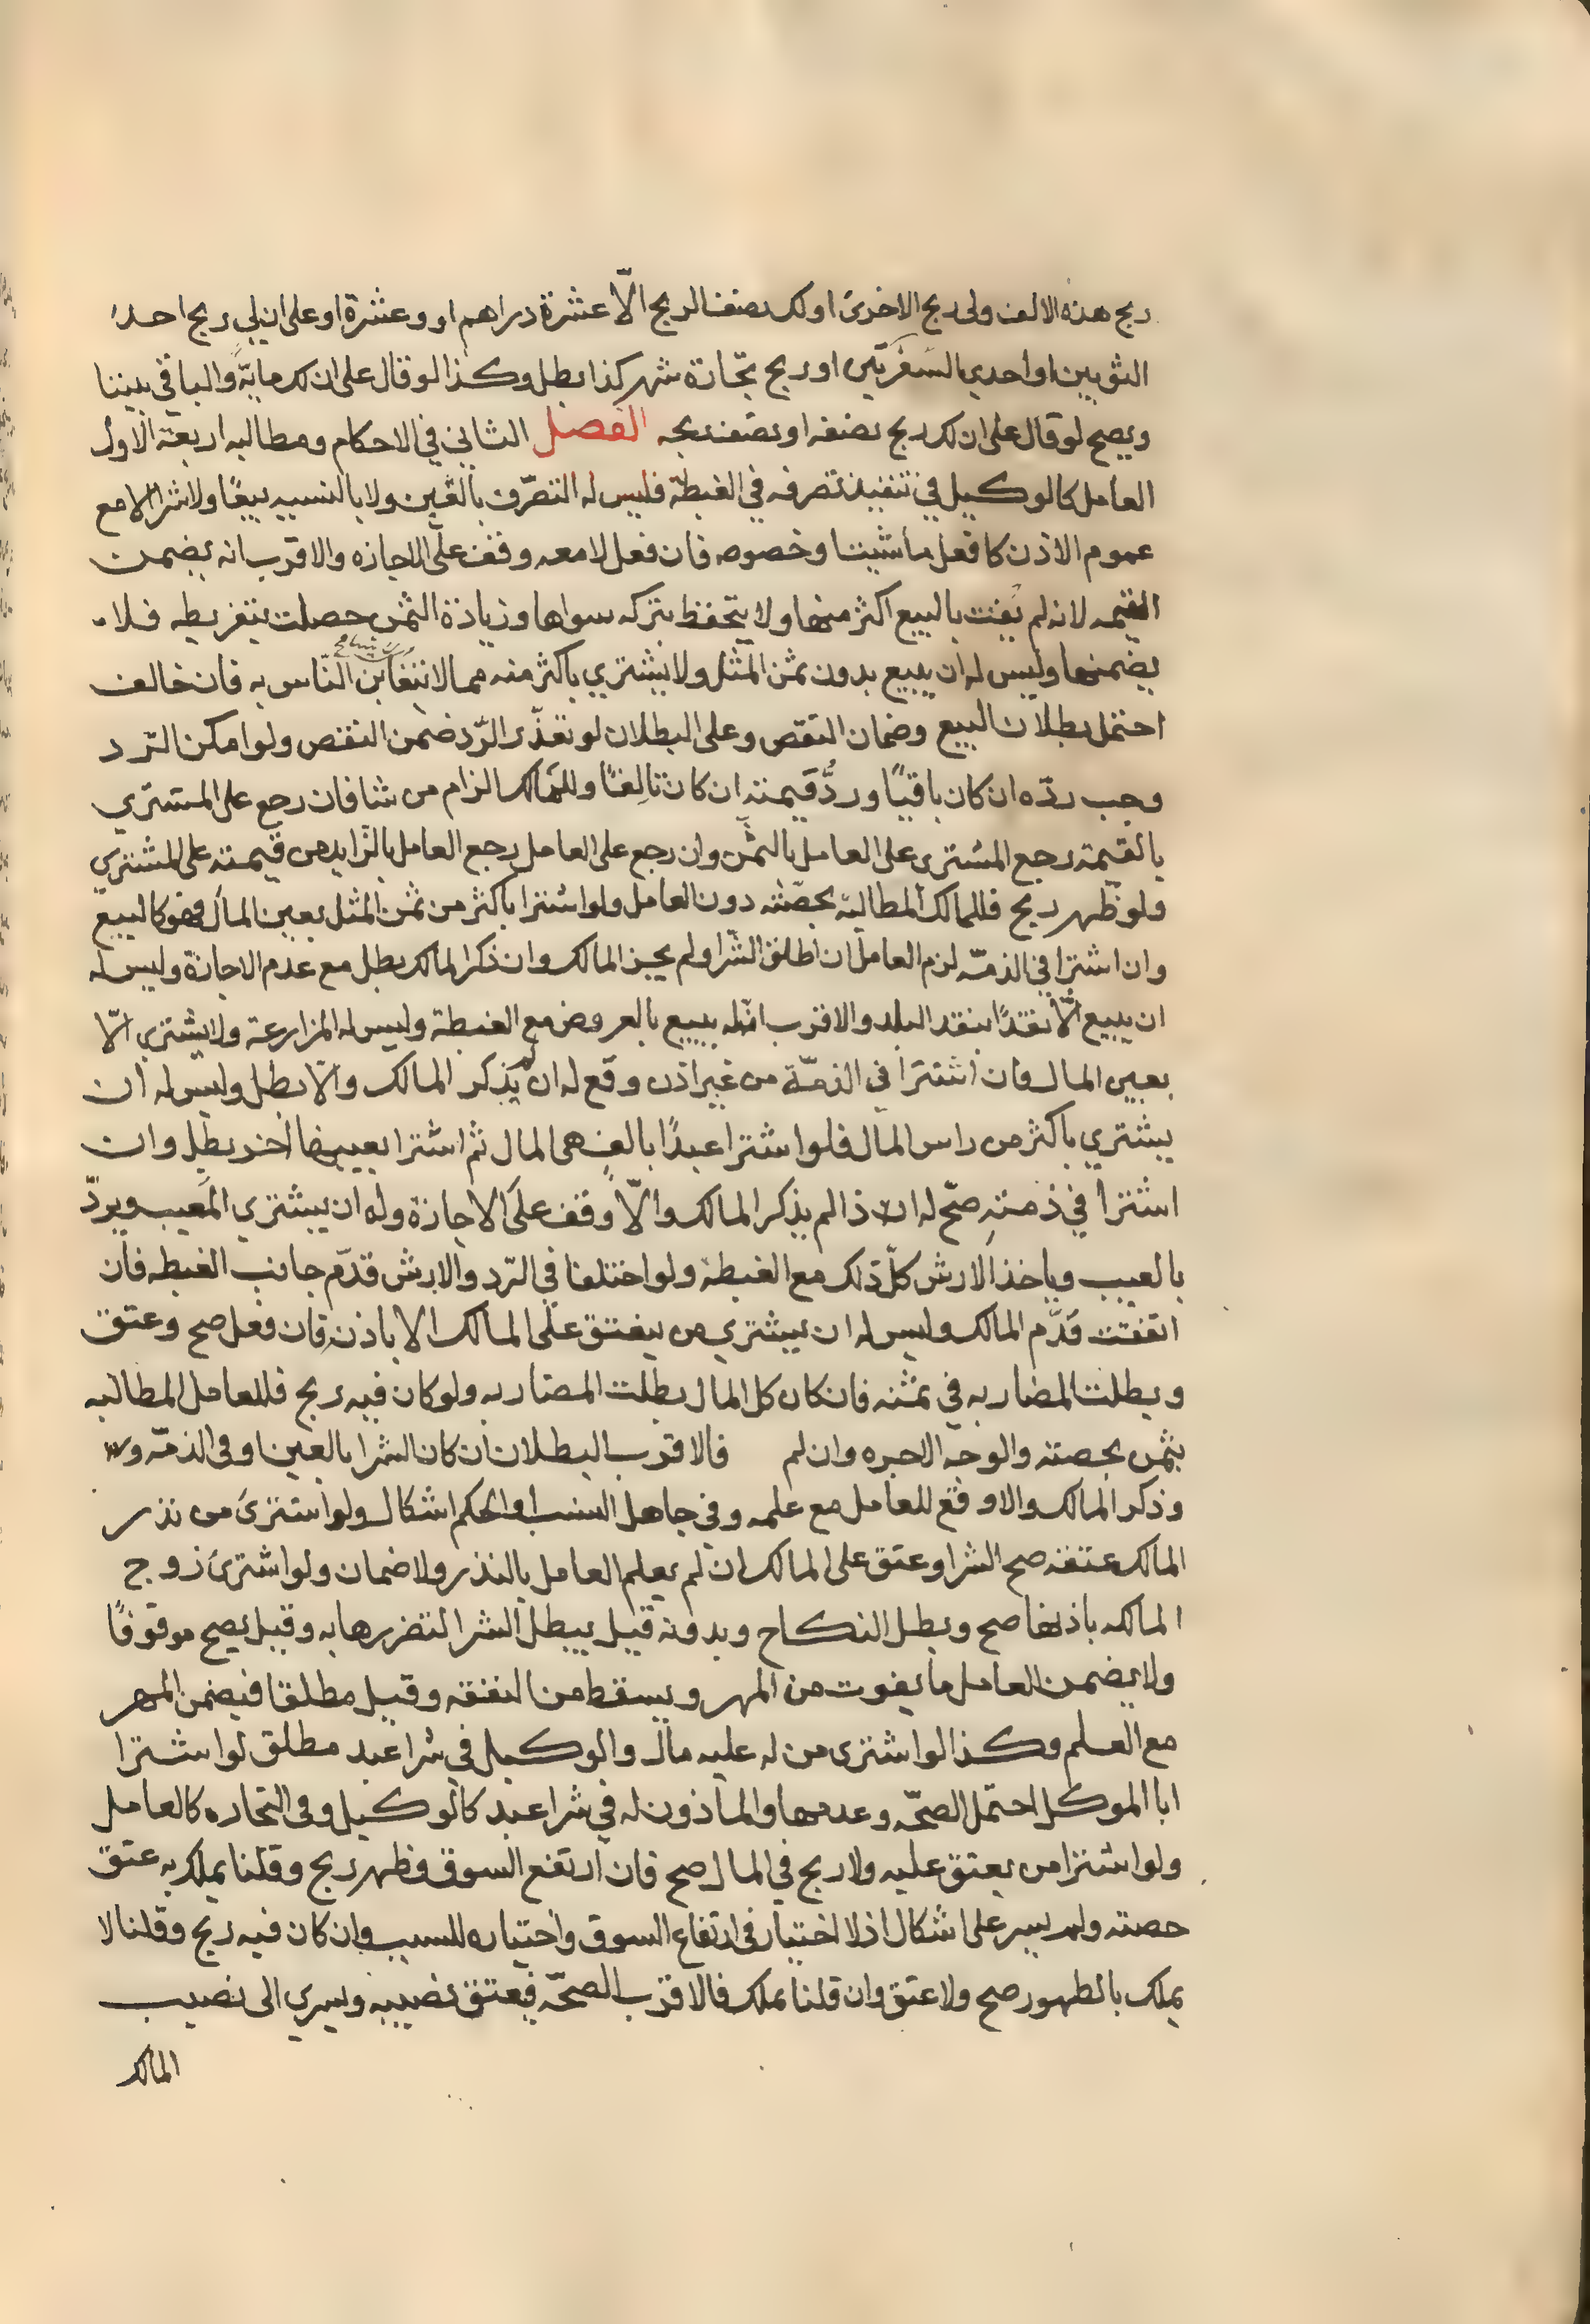 ربح هذه الالف ولى ربح الاخرى او لك نصف الربح الّا عشرة دراهم او وعشرة او على ان لي ربح احد
الثوبين او احدي السفرتين او ربح تجارة شهر كذا بطل وكذا لو قال على ان لك مايةً والباقي بيننا
ويصح لو قال على ان لك ربح نصفه او نصف ربحه الفصل الثاني في الاحكام ومطالبه اربعة الاول
العامل كالوكيل في تنفيذ تصرفه في الغبطة فليس له التصرّف بالغبن ولا بالنسيه بيعًا ولا شرا الا مع
عموم الاذن كافعل ما شيت او خصوصه فان فعل لا معه وقف على الاجازه والاقرب انه يضمن
القيمه لانه لم يفت بالبيع اكثر منها ولا يتحفظ بتركه سواها وزيادة الثمن حصلت بتفريطه فلا
يضمنها وليس له ان يبيع بدون ثمن المثل ولا يشتري باكثر منه مما لا يتغابن النّاس به فان خالف
احتمل بطلان البيع وضمان النقص وعلى البطلان لو تعذّر الرّد ضمن النقص ولو امكن الرّد
وجب ردّه ان كان باقيًا وردُّ قيمته ان كان تالفًا وللمالك الزام من شا فان رجع على المشتري
بالقيمة رجع المشترى على العامل بالثمن وان رجع على العامل رجع العامل بالزايد من قيمته على المشتري
ولو ظهر ربح فللمالك المطالبة بحصّته دون العامل ولو اشترا باكثر من ثمن المثل بعين المال فهو كالبيع
وان اشترا في الذمّه لزم العامل ان اطلق الشّرا ولم يجز المالك وان ذكر المالك بطل مع عدم الاجازة وليس له
ان يبيع الّا نقدًا بنقد البلد والاقرب انّه يبيع بالعروض مع الغبطة وليس له المزارعة ولا يشتري الّا
بعين المال فان اشترا في الذمّة من غير اذن وقع له ان لم يذكر المالك والّا بطل وليس له ان
يشتري باكثر من راس المال فلو اشترا عبدًا بالف هى المال ثم اشترا بعينها اخر بطل وان
اشترا في ذمته صحّ له اذا لم يذكر المالك والّا وقف على الاجازة وله ان يشتري المعيب ويردّ
بالعيب وياخذ الارش كلّ ذلك مع الغبطة ولو اختلفا في الرّد والارش قدّم جانب الغبطه فان
اتفقت قدّم المالك وليس له ان يشتري من ينعتق على المالك الا باذنه فان فعل صح وعتق
وبطلت المضاربه في ثمنه فان كان كل المال بطلت المضاربه ولو كان فيه ربح فللعامل المطالبه
بثمن بحصته والوجه الاجره وان لم فالاقرب البطلان ان كان الشرا بالعين او فى الذمّه
وذكر المالك والا وقع للعامل مع علمه وفي جاهل النسب او الحكم اشكال ولو اشترى من نذر
المالك عتقه صح الشرا وعتق على المالك ان لم يعلم العامل بالنذر ولا ضمان ولو اشترى زوج
المالكه باذنها صح وبطل النكاح وبدونه قيل يبطل الشرا لتضررها به وقيل يصح موقوفًا
ولا يضمن العامل ما يفوت من المهر ويسقط من النفقه وقيل مطلقا فيضمن المهر
مع العلم وكذا لو اشترى من له عليه مال والوكيل في شرا عبد مطلق لو اشترا
ابا الموكل احتمل الصحّه وعدمها والماذون له في شرا عبد كالوكيل وفى التجاره كالعامل
ولو اشترا من يعتق عليه ولا ربح في المال صح فان ارتفع السوق فظهر ربح وقلنا يملك به عتق
حصته ولم يسر على اشكال اذ لا اختيار فى ارتفاع السوق واختياره للسبب وان كان فيه ربح وقلنا لا
يملك بالظهور صح ولا عتق وان قلنا يملك فالاقرب الصحّه فيعتق نصيبه ويسري الى نصيب
المالك